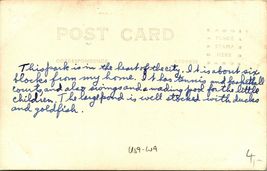 POST CARD
PLACE
STAMP
HERE
CORRESPONDENCE
This park is in the heart of the city. It is about six
blocks from my home. It has tennis and basketball
courts and also swings and a wading pool for the little
children. The large pond is well stocked with ducks
and goldfish.
4,-